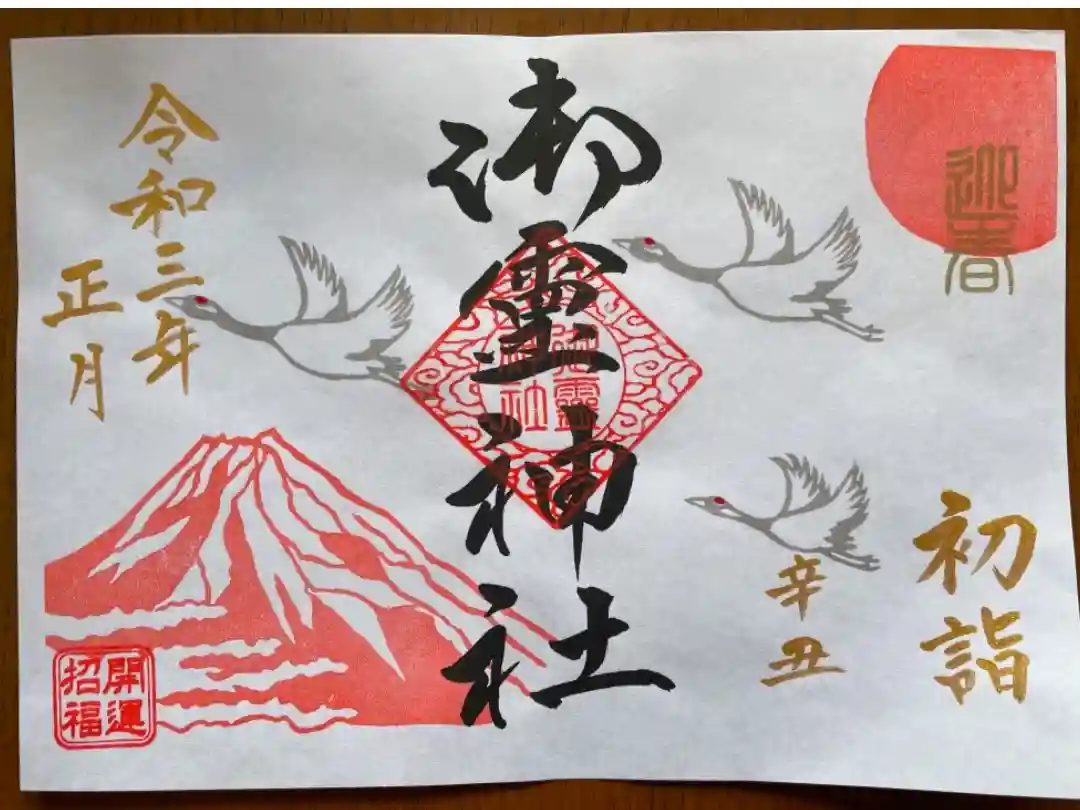 迎春
初詣
辛丑
御霊神社
御靈
神社
令和三年
正月
開運
招福